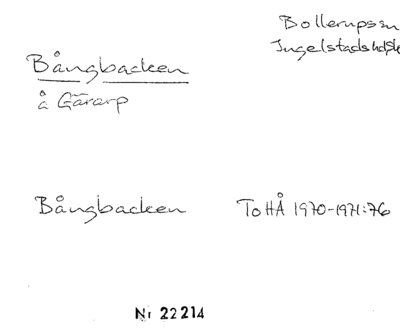 Bollerups sn
Ingelstads hd, Sk
Bångbacken
å Gärarp
Bångbacken ToHÅ 1970-1971:76
Nr 22214